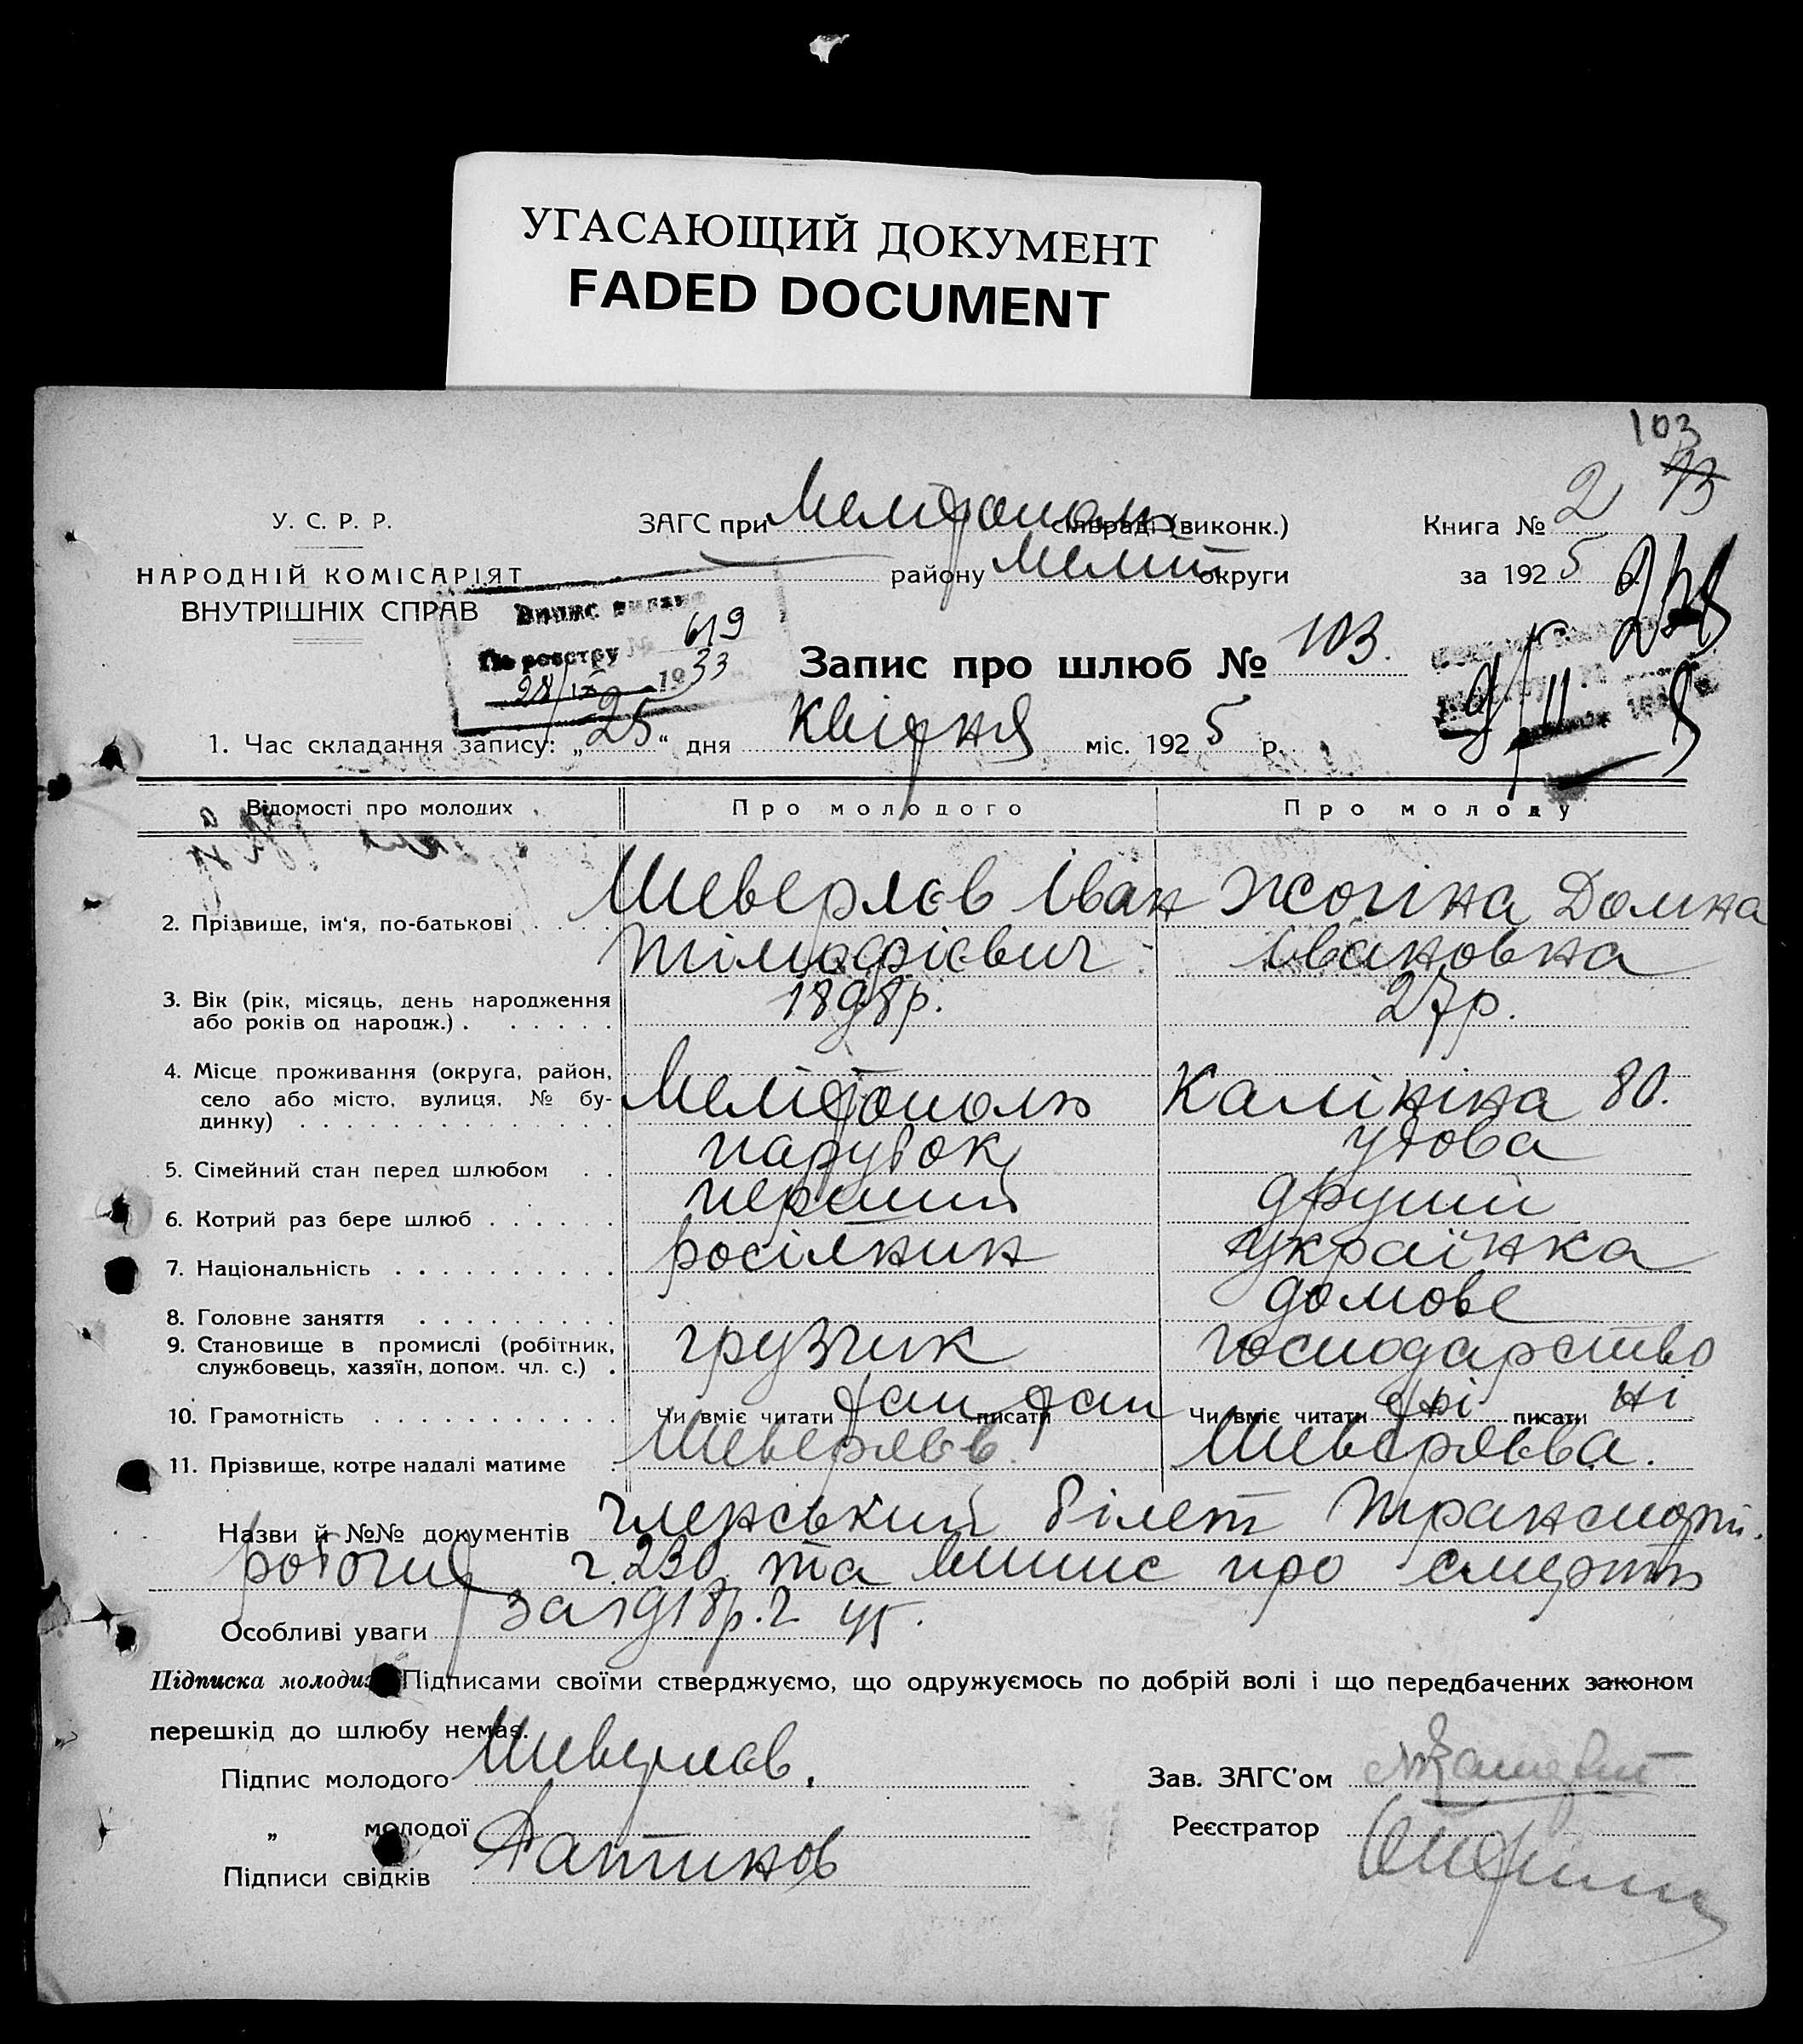 УГАСАЮЩИЙ ДОКУМЕНТ
FADED DOCUMENT
103
73
У. С. Р. Р.
НАРОДНІЙ КОМІСАРІЯТ
ВНУТРІШНІХ СПРАВ
ЗАГС при Мелітополь сільраді (виконк.)
району Меліт округи
Книга № 2
за 1925
Випис видано
По реєстру № 619
28/IX 1933
Запис про шлюб № 103.
1. Час складання запису: „25“ дня квітня міс. 1925 р.
Відомості про молодих Про молодого Про молоду
2. Прізвище, ім'я, по-батькові Шеверлєв Іван Жогіна Домна
Тімофієвич Івановна
3. Вік (рік, місяць, день народження 1898р. 27р.
або років од народж.)
4. Місце проживання (округа, район,
село або місто, вулиця, № бу- Мелітополь Калініна 80.
динку)
5. Сімейний стан перед шлюбом парубок удова
6. Котрий раз бере шлюб перший другий
7. Національність росіянин українка
8. Головне заняття домове
9. Становище в промислі (робітник, грузчик господарство
службовець, хазяїн, допом. чл. с.)
10. Грамотність Чи вміє читати так писати так Чи вміє читати ні писати ні
11. Прізвище, котре надалі матиме Шеверлєв. Шеверлєва.
Назви й №№ документів членський білет транспорт.
робочих ч. 230 та випис про смерть
Особливі уваги за 1918р. ч 45.
Підписка молодих Підписами своїми стверджуємо, що одружуємось по добрій волі і що передбачених законом
перешкід до шлюбу немає.
Підпис молодого Шеверлєв. Зав. ЗАГС'ом
„ молодої Реєстратор
Підписи свідків